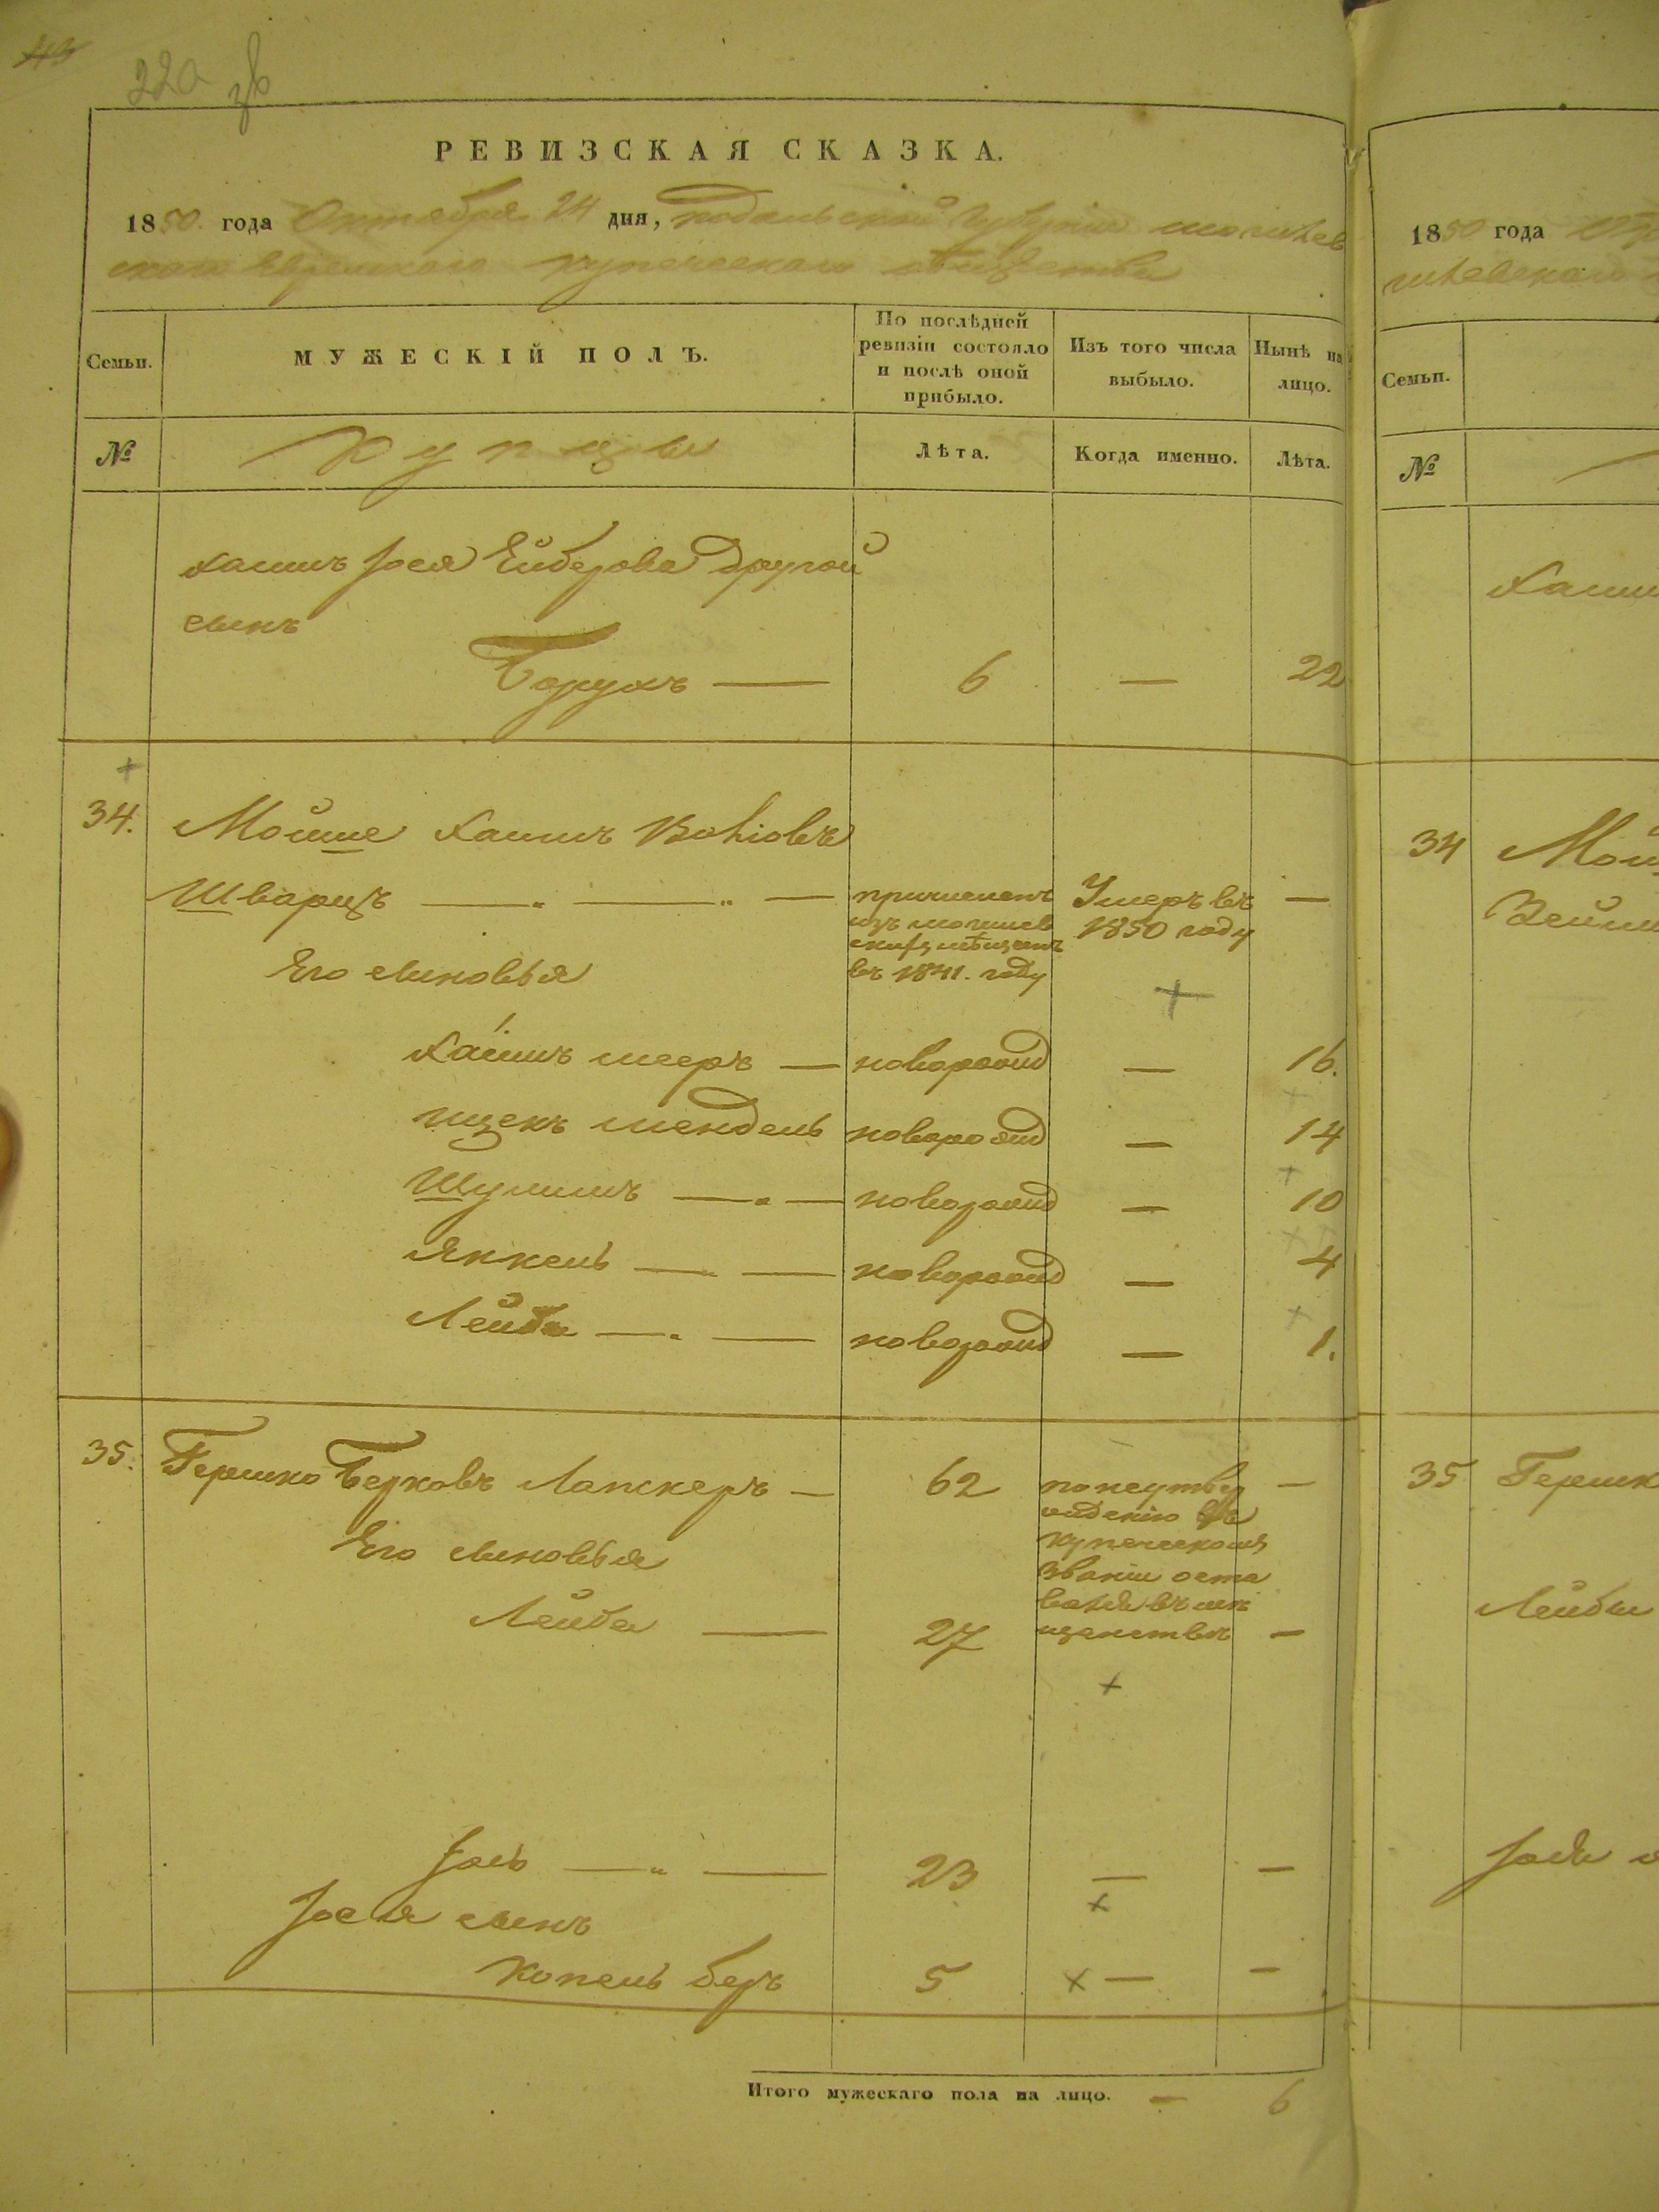 220
РЕВИЗСКАЯ СКАЗКА.
1850. года Октября 24 дня, подольской Губерніи могилев
скаго Еврейскаго купеческаго общества
Семьи.
МУЖЕСКІЙ ПОЛЪ.
По послѣдней ревизіи состояло и послѣ оной прибыло.
Изъ того числа выбыло.
Нынѣ на лицо.
№
Купцы
Лѣта.
Когда именно.
Лѣта.
хаимъ Iося Лейберова другой
сынъ
Борухъ — 6 — 22
34. Мойше хаимъ
Шварцъ — — — причисленъ изъ могилев скихъ мѣщанъ въ 1841. году Умеръ въ 1850 году —
Его сыновья
хаимъ мееръ — новорожд — 16.
ицекъ мендель новорожд — 14
Шулимъ — — новорожд — 10
Янкель — — новорожд — 4
Лейба — — новорожд — 1.
35. Гершко Берковъ Лапскеръ — 62 понеутвер жденію въ купеческомъ званіи оста вался въ мѣ щанствѣ —
Его сыновья
Лейба — 27 —
Iось — — 23 — —
Iося сынъ
копель беръ 5 — —
Итого мужескаго пола на лицо. — 6
1850 года
Семьи.
№
34
35 Гершк
Лейбы